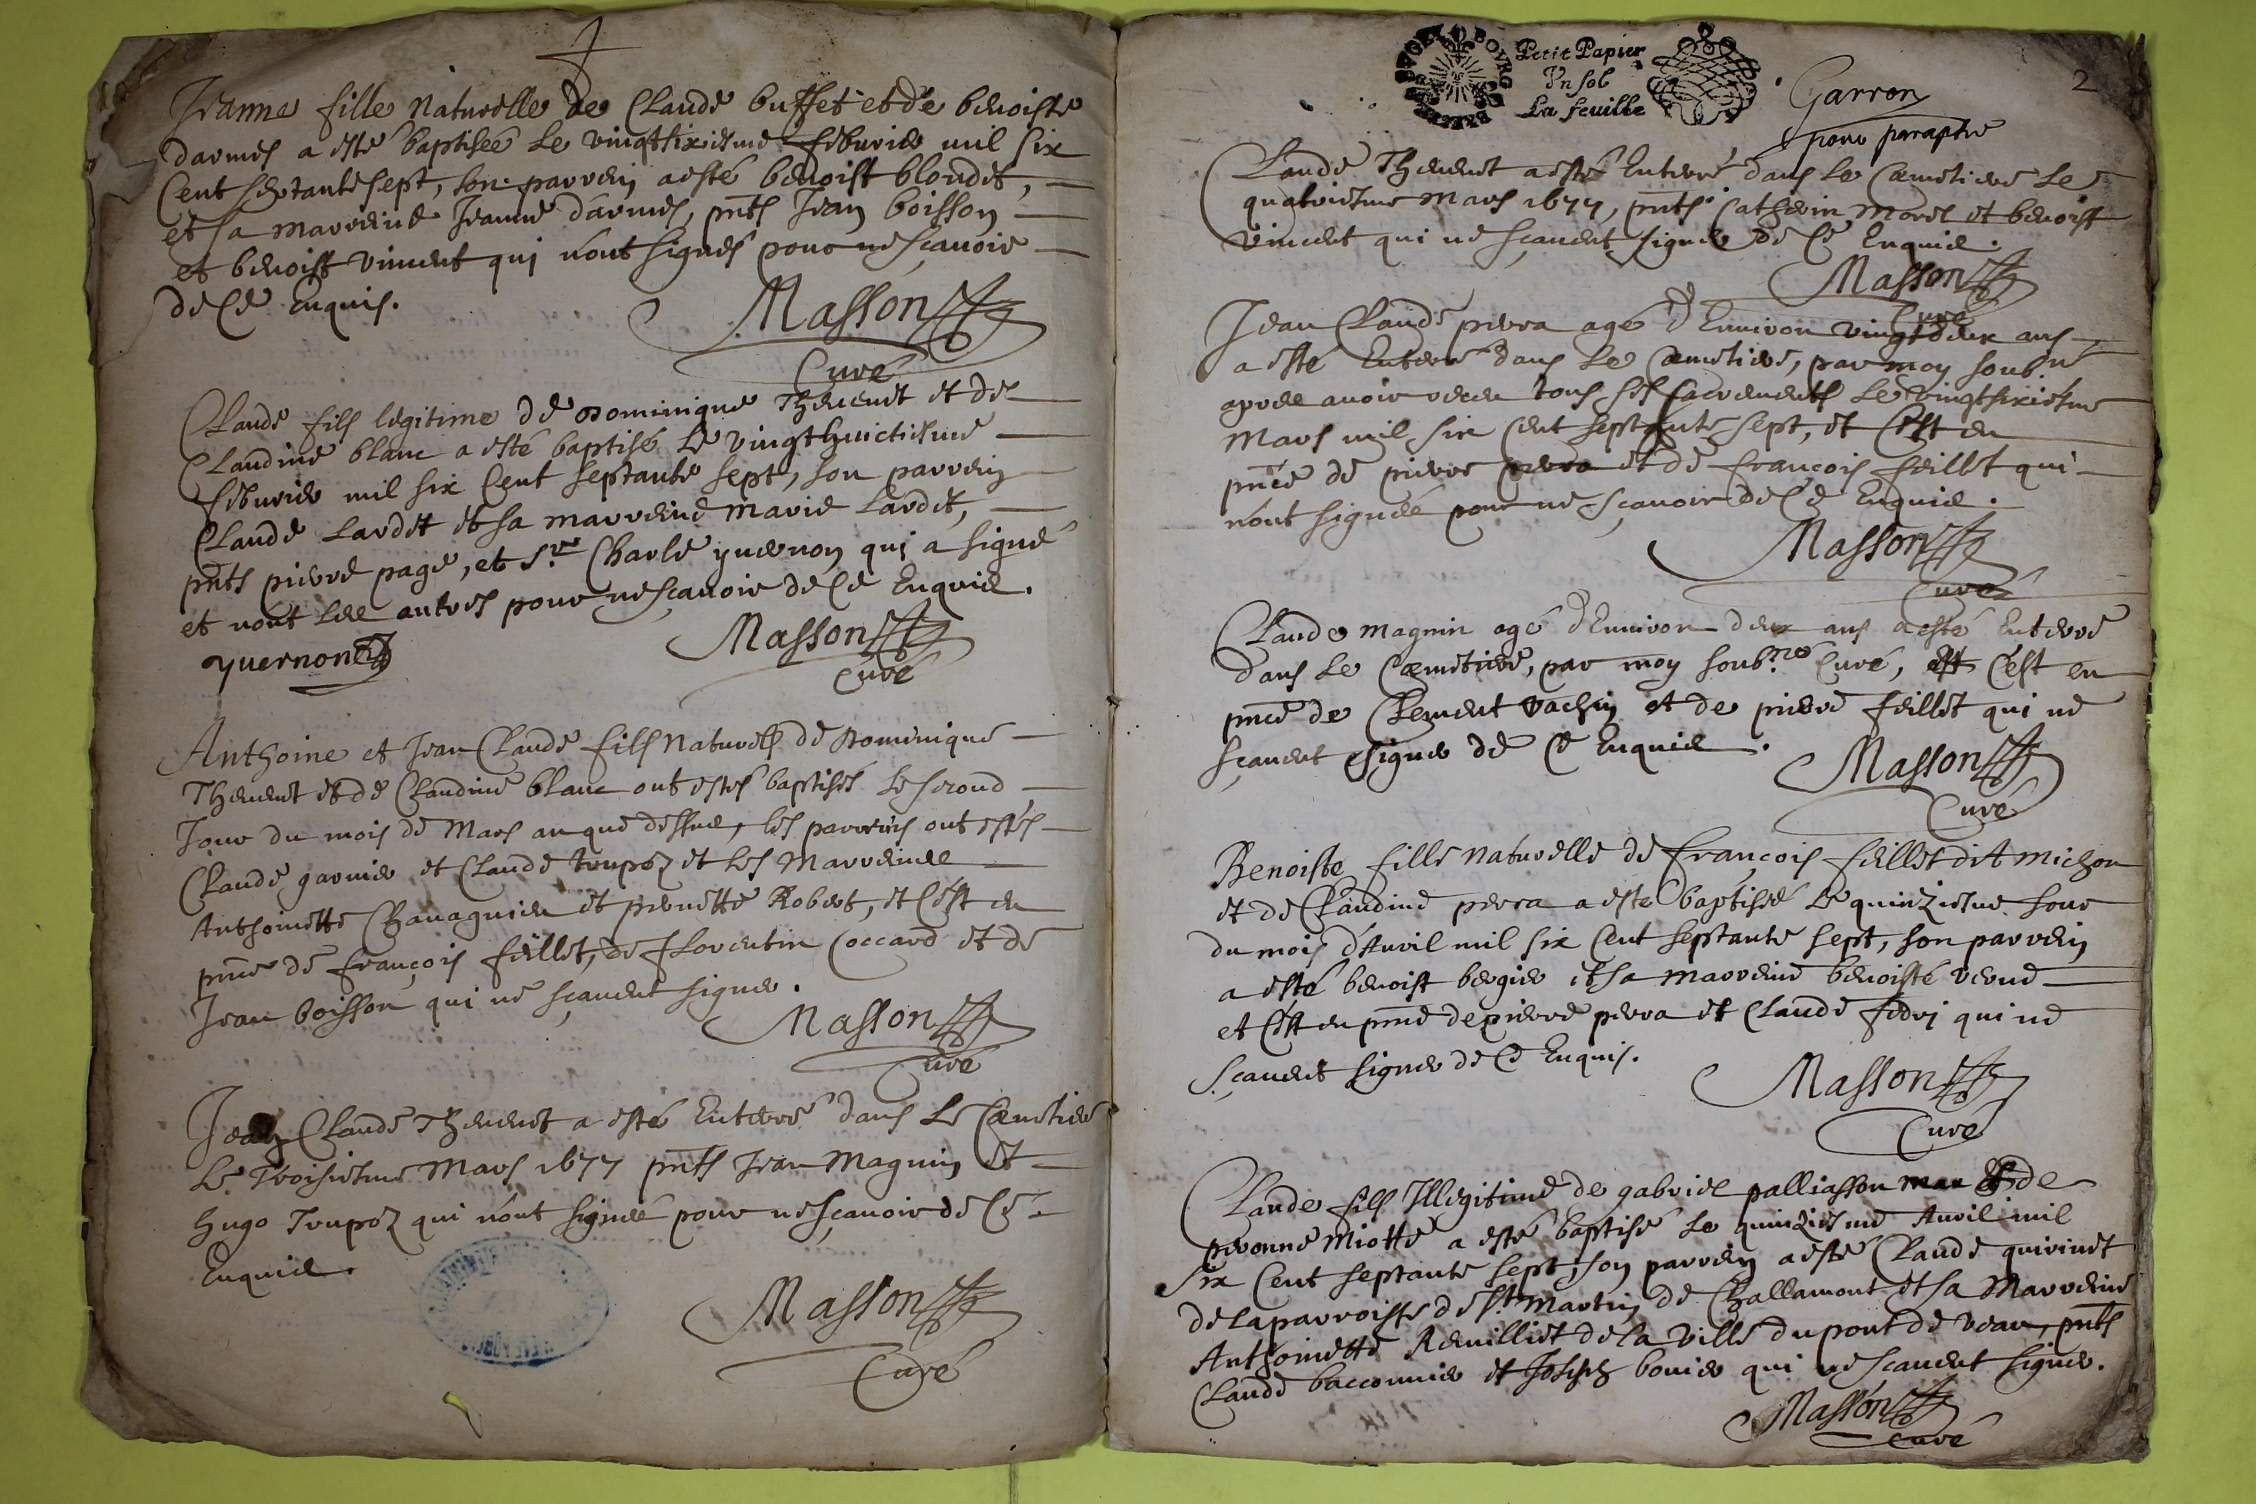 Jeanne fille Naturelle de Claude buffet et de benoiste
darmes a esté baptisée Le vingtsixiesme febvrier mil six
Cent septante sept, son parrein a esté benoist blondet,
et sa marreine Jeanne d'armes, pnts Jean boisson
et benoist vincent qui n'ont signés pour ne sçavoir
de Ce Enquis.
Masson
Curé
Claude fils legitime de Dominique Thevenet et de
Claudine blanc a esté baptisé Le vingthuictiesme
febvrier mil six Cent septante sept, son parrein
Claude Lardet et sa marreine marie Lardet,
pnts pierre page, et Sr. Charle yvernon qui a signé
et n'ont Les autres pour ne sçavoir de Ce Enquis.
yvernon
Masson
Curé
Anthoine et Jean Claude fils Naturels de Dominique
Thevenet et de Claudine blanc ont estés baptisés Le second
Jour du mois de Mars an que dessus, les parreins ont estés
Claude garnier et Claude trupoz et les Marreines
Anthoinette Chavagnieu et pernette Robert, et C'est en
pnce de françois feillet, de florentin Coccard et de
Jean boisson qui ne sçavent signer.
Masson
Curé
Jean Claude Thevenet a esté Enterré dans Le Cæmetiere
Le Troisiesme Mars 1677 pnts Jean Magnin et
hugo Trupoz qui n'ont signés pour ne sçavoir de Ce
Enquis.
Masson
Curé
Petit Papier
Vn sol
La feuille
Garron
pour paraphe
2
Claude Thevenet a esté Enterré dans Le Cæmetiere Le
quatriesme Mars 1677, pnts Catherin Morel et benoist
vincent qui ne sçavent signer de Ce Enquis.
Masson
Curé
Jean Claude perra agé d'Environ vingtdeux ans
a esté Enterré dans Le Cæmetiere, par moy soubné
apres avoir receu tous ses sacrements Le vingtsixiesme
Mars mil six Cent septante sept, et C'est en
pnce de pierre perra et de françois feillet qui
n'ont signés pour ne sçavoir de Ce Enquis.
Masson
Curé
Claude magnin agé d'Environ deux ans a esté Enterré
dans Le Cæmetiere, par moy soub.né Curé, C'est en
pnce de Clement vachin et de pierre feillet qui ne
sçavent signer de Ce Enquis.
Masson
Curé
Benoiste fille Naturelle de françois feillet dit michon
et de Claudine perra a esté baptisée Le quinziesme Jour
du mois d'Avril mil six Cent septante sept, son parrein
a esté benoist bergier et sa marreine benoiste
et C'est en pnce de pierre perra et Claude qui ne
sçavent signer de Ce Enquis.
Masson
Curé
Claude fils Illegitime de gabriel palliasson et de
peronne Miotte a esté baptisé Le quinziesme Avril mil
six Cent septante sept, son parrein a esté Claude quivinet
de la parroisse de St. Martin de Challamont et sa Marreine
Anthoinette Revilliet de la ville du pont de veau, pnts
Claude bacconnier et Joseph bovier qui ne sçavent signer.
Masson
Curé